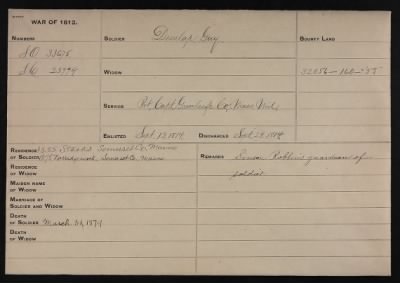 WAR OF 1812.
NUMBERS
SOLDIER Dunlap Guy
BOUNTY LAND
S.O. 33675
S.C. 23779
WIDOW
32056-160-'55
SERVICE Pvt Capt Co. Mass Mil.
ENLISTED Sept. 13 1814 DISCHARGED Sept 28 1814
RESIDENCE 1855 Starks Somerset Co. Maine
OF SOLDIER Norridgewock, Somerset Co. Maine
REMARKS Robbins guardian of
soldier
RESIDENCE
OF WIDOW
MAIDEN NAME
OF WIDOW
MARRIAGE OF
SOLDIER AND WIDOW
DEATH
OF SOLDIER March 31, 1874
DEATH
OF WIDOW